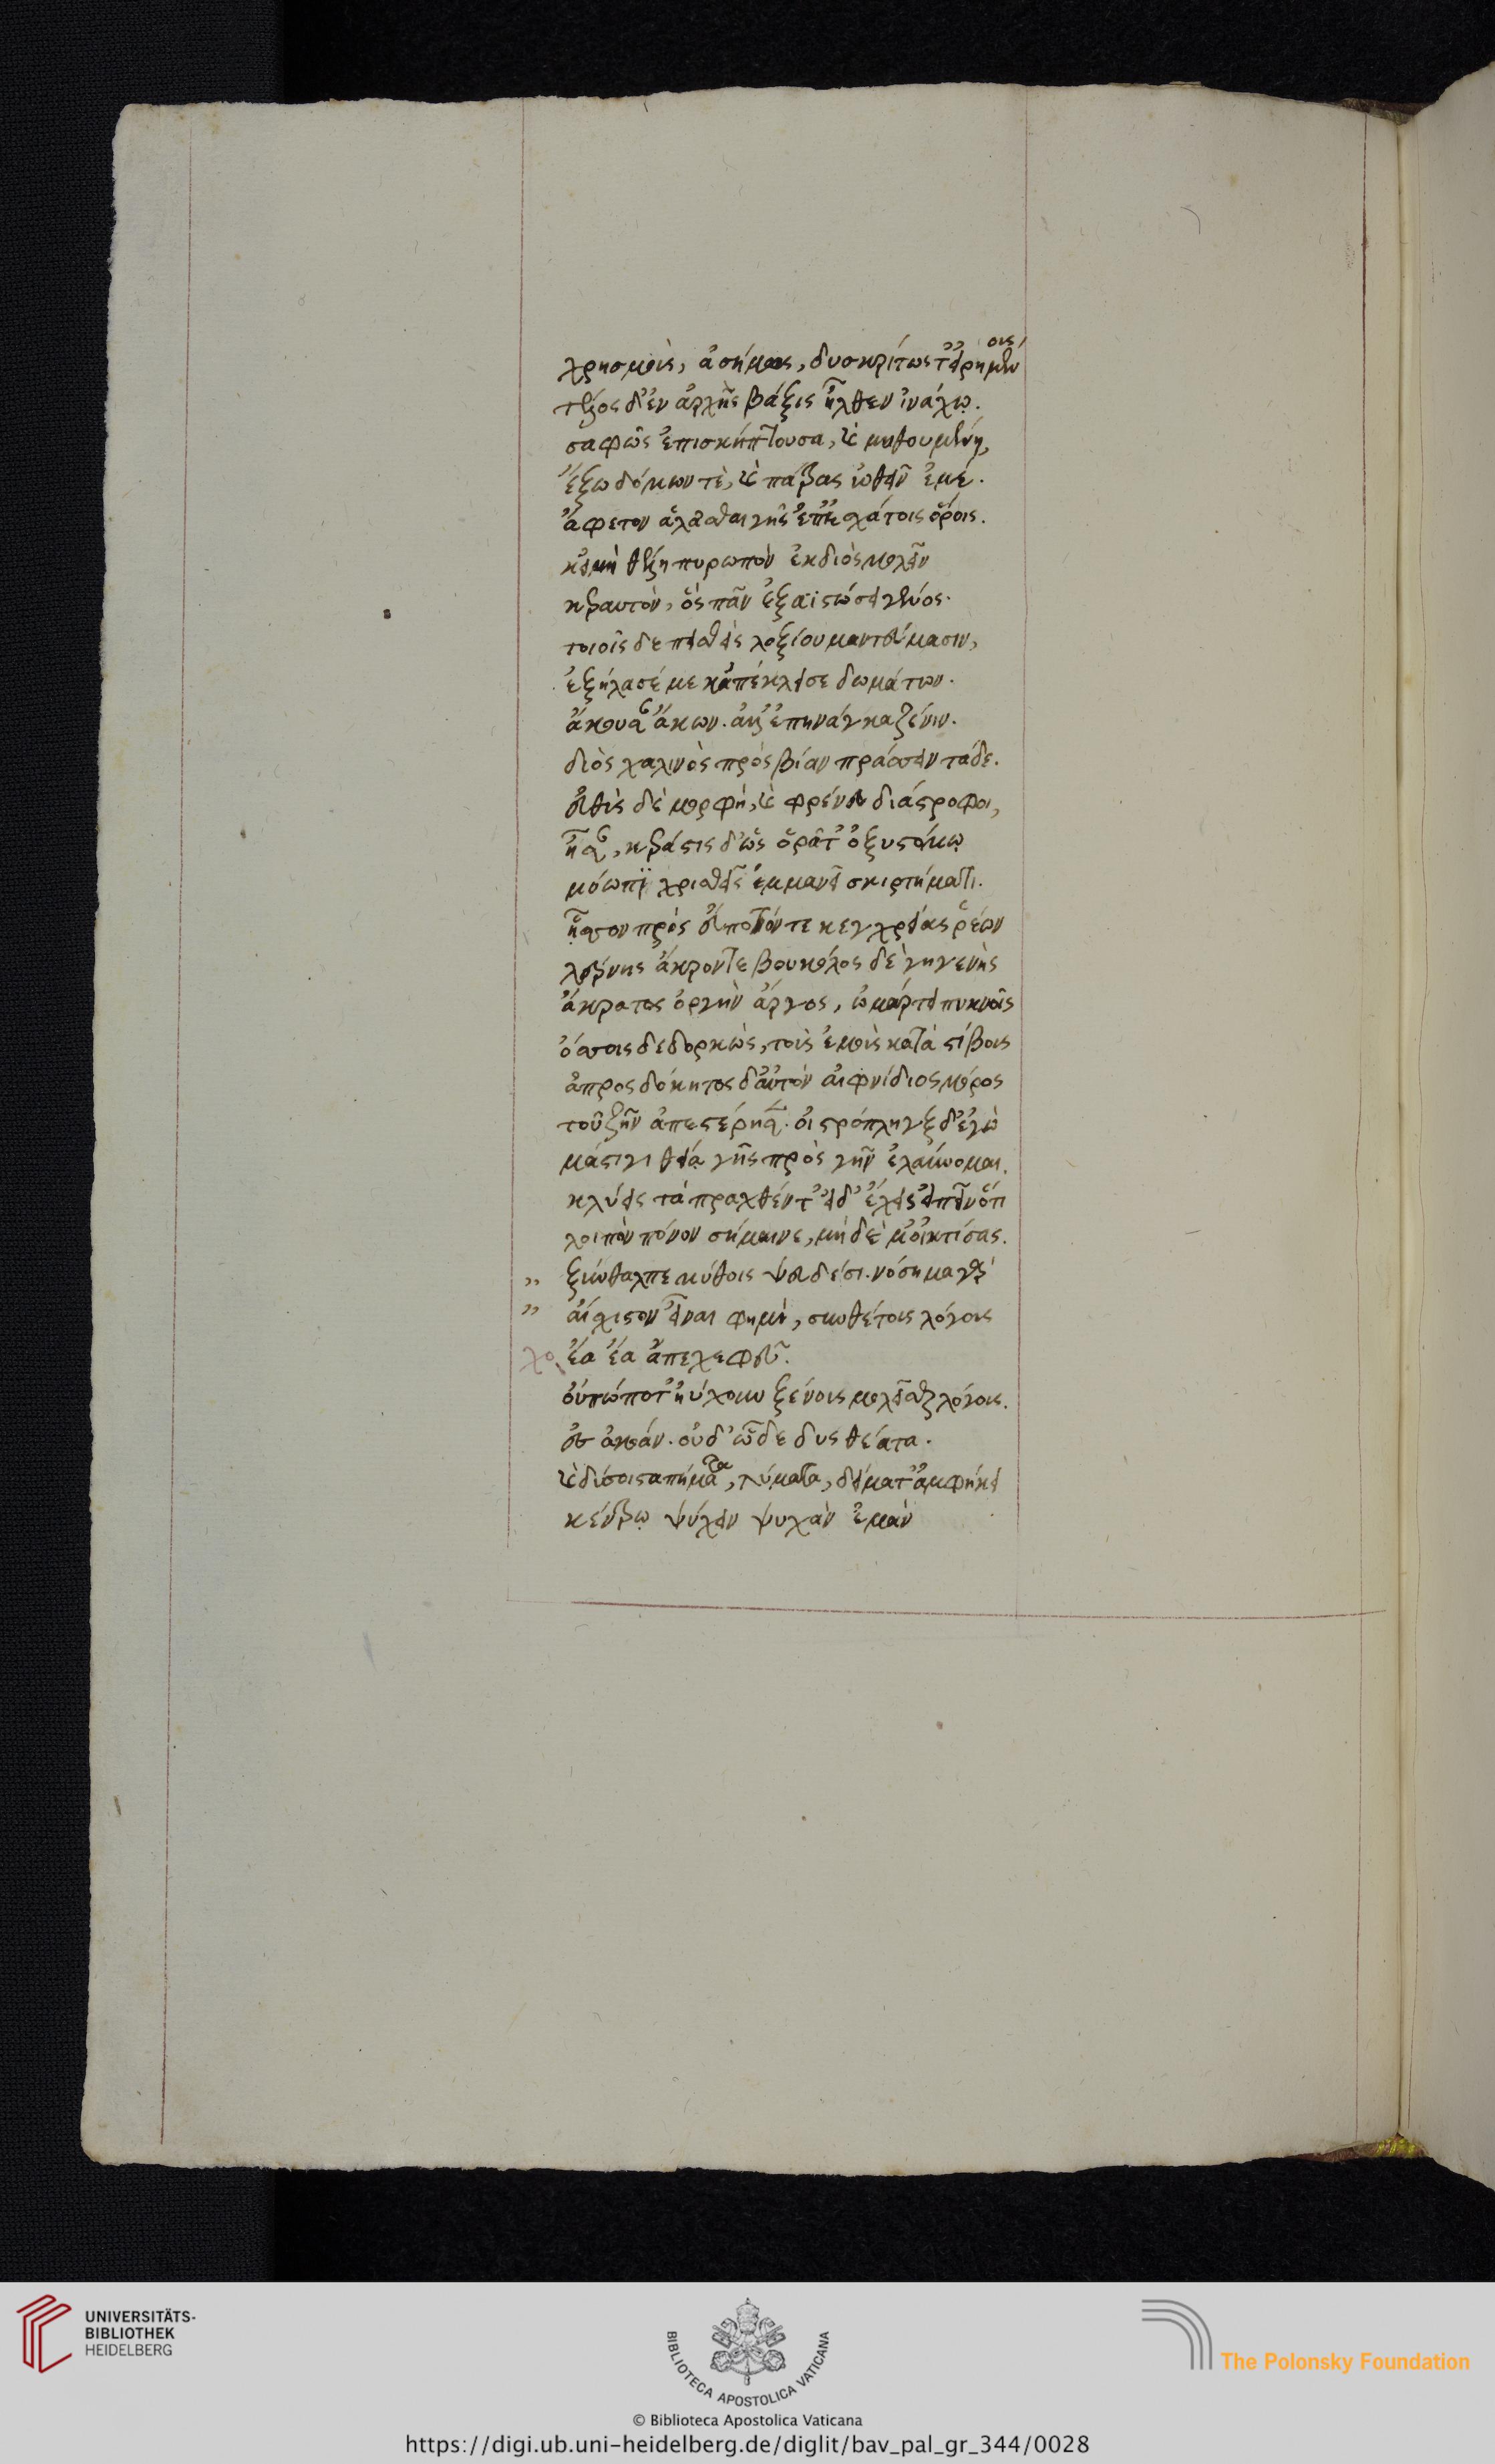 χρησμοὶς, ἀσήμοις, δυσκρίτως τ' εἰρημένοις
τέλος δ' ἐν ἀρχῆς βάξις ἦλθεν ἰνάχῳ.
σαφῶς ἐπισκήπτουσα, καὶ μυθουμένη,
ἔξω δόμων τὲ, καὶ πάτρας ὠθεῖν ἐμέ.
ἄφετον ἀλᾶσθαι γῆς ἐπ' ἐσχάτοις ὅροις.
κεἰ μὴ θέλῃ πυρωπὸν ἐκ διὸς μολεῖν
κεραυνὸν, ὃς πᾶν ἐξαϊστώσει γένος.
τοιοῖς δε πεισθεὶς λοξίου μαντεύμασιν,
ἐξήλασέ με κἀπέκλεισε δωμάτων.
ἄκουσαν ἄκων. ἀλλ' ἐπηνάγκαζέ νιν.
διὸς χαλινὸς πρὸς βίαν πράσσειν τάδε.
εὐθὺς δὲ μορφὴ, καὶ φρένες διάστροφοι,
ἦσαν, κεράστις δ' ὡς ὁρᾶτ' ὀξυστόμῳ
μύωπϊ χρισθεῖσ' ἐμμανεῖ σκιρτήματι.
ᾖσσον πρὸς εὔποτόν τε κεγχρείας ῥέων
λέρνης ἄκρόν τε βουκόλος δὲ γηγενὴς
ἄκρατος ὀργὴν ἄργος, ὡμάρτει πυκνοῖς
ὄσσοις δεδορκὼς, τοὺς ἐμοὺς κατὰ στίβους
ἀπροσδόκητος δ' αὐτὸν αἰφνίδιος μόρος
τοῦ ζῆν ἀπεστέρησεν. οἰστρόπληγξ δ' ἐγὼ
μάστιγι θείᾳ γῆς πρὸς γῆν ἐλαύνομαι.
κλύεις τὰ πραχθέντ' εἰ δ' ἔχεις εἰπεῖν ὅτι
λοιπὸν πόνον σήμαινε, μὴ δέ μ' οἰκτίσας.
" ξύνθαλπε μύθοις ψευδέσι. νόσημα γὰρ
" αἴσχιστον εἶναι φημὶ, συνθέτους λόγους
χο ἔα ἔα ἄπεχε φεῦ.
οὐπώποτ' ηὔχουν ξένους μολεῖσθαι λόγους.
ἐς ἀκοάν. οὐδ' ὧδε δυσθέατα.
καὶ δύσοιστα πήματα, λύματα, δείματ' ἀμφήκει
κέντρῳ ψύχειν ψυχὰν ἐμὰν
UNIVERSITÄTS-
BIBLIOTHEK
HEIDELBERG
BIBLIOTECA APOSTOLICA VATICANA
The Polonsky Foundation
© Biblioteca Apostolica Vaticana
https://digi.ub.uni-heidelberg.de/diglit/bav_pal_gr_344/0028